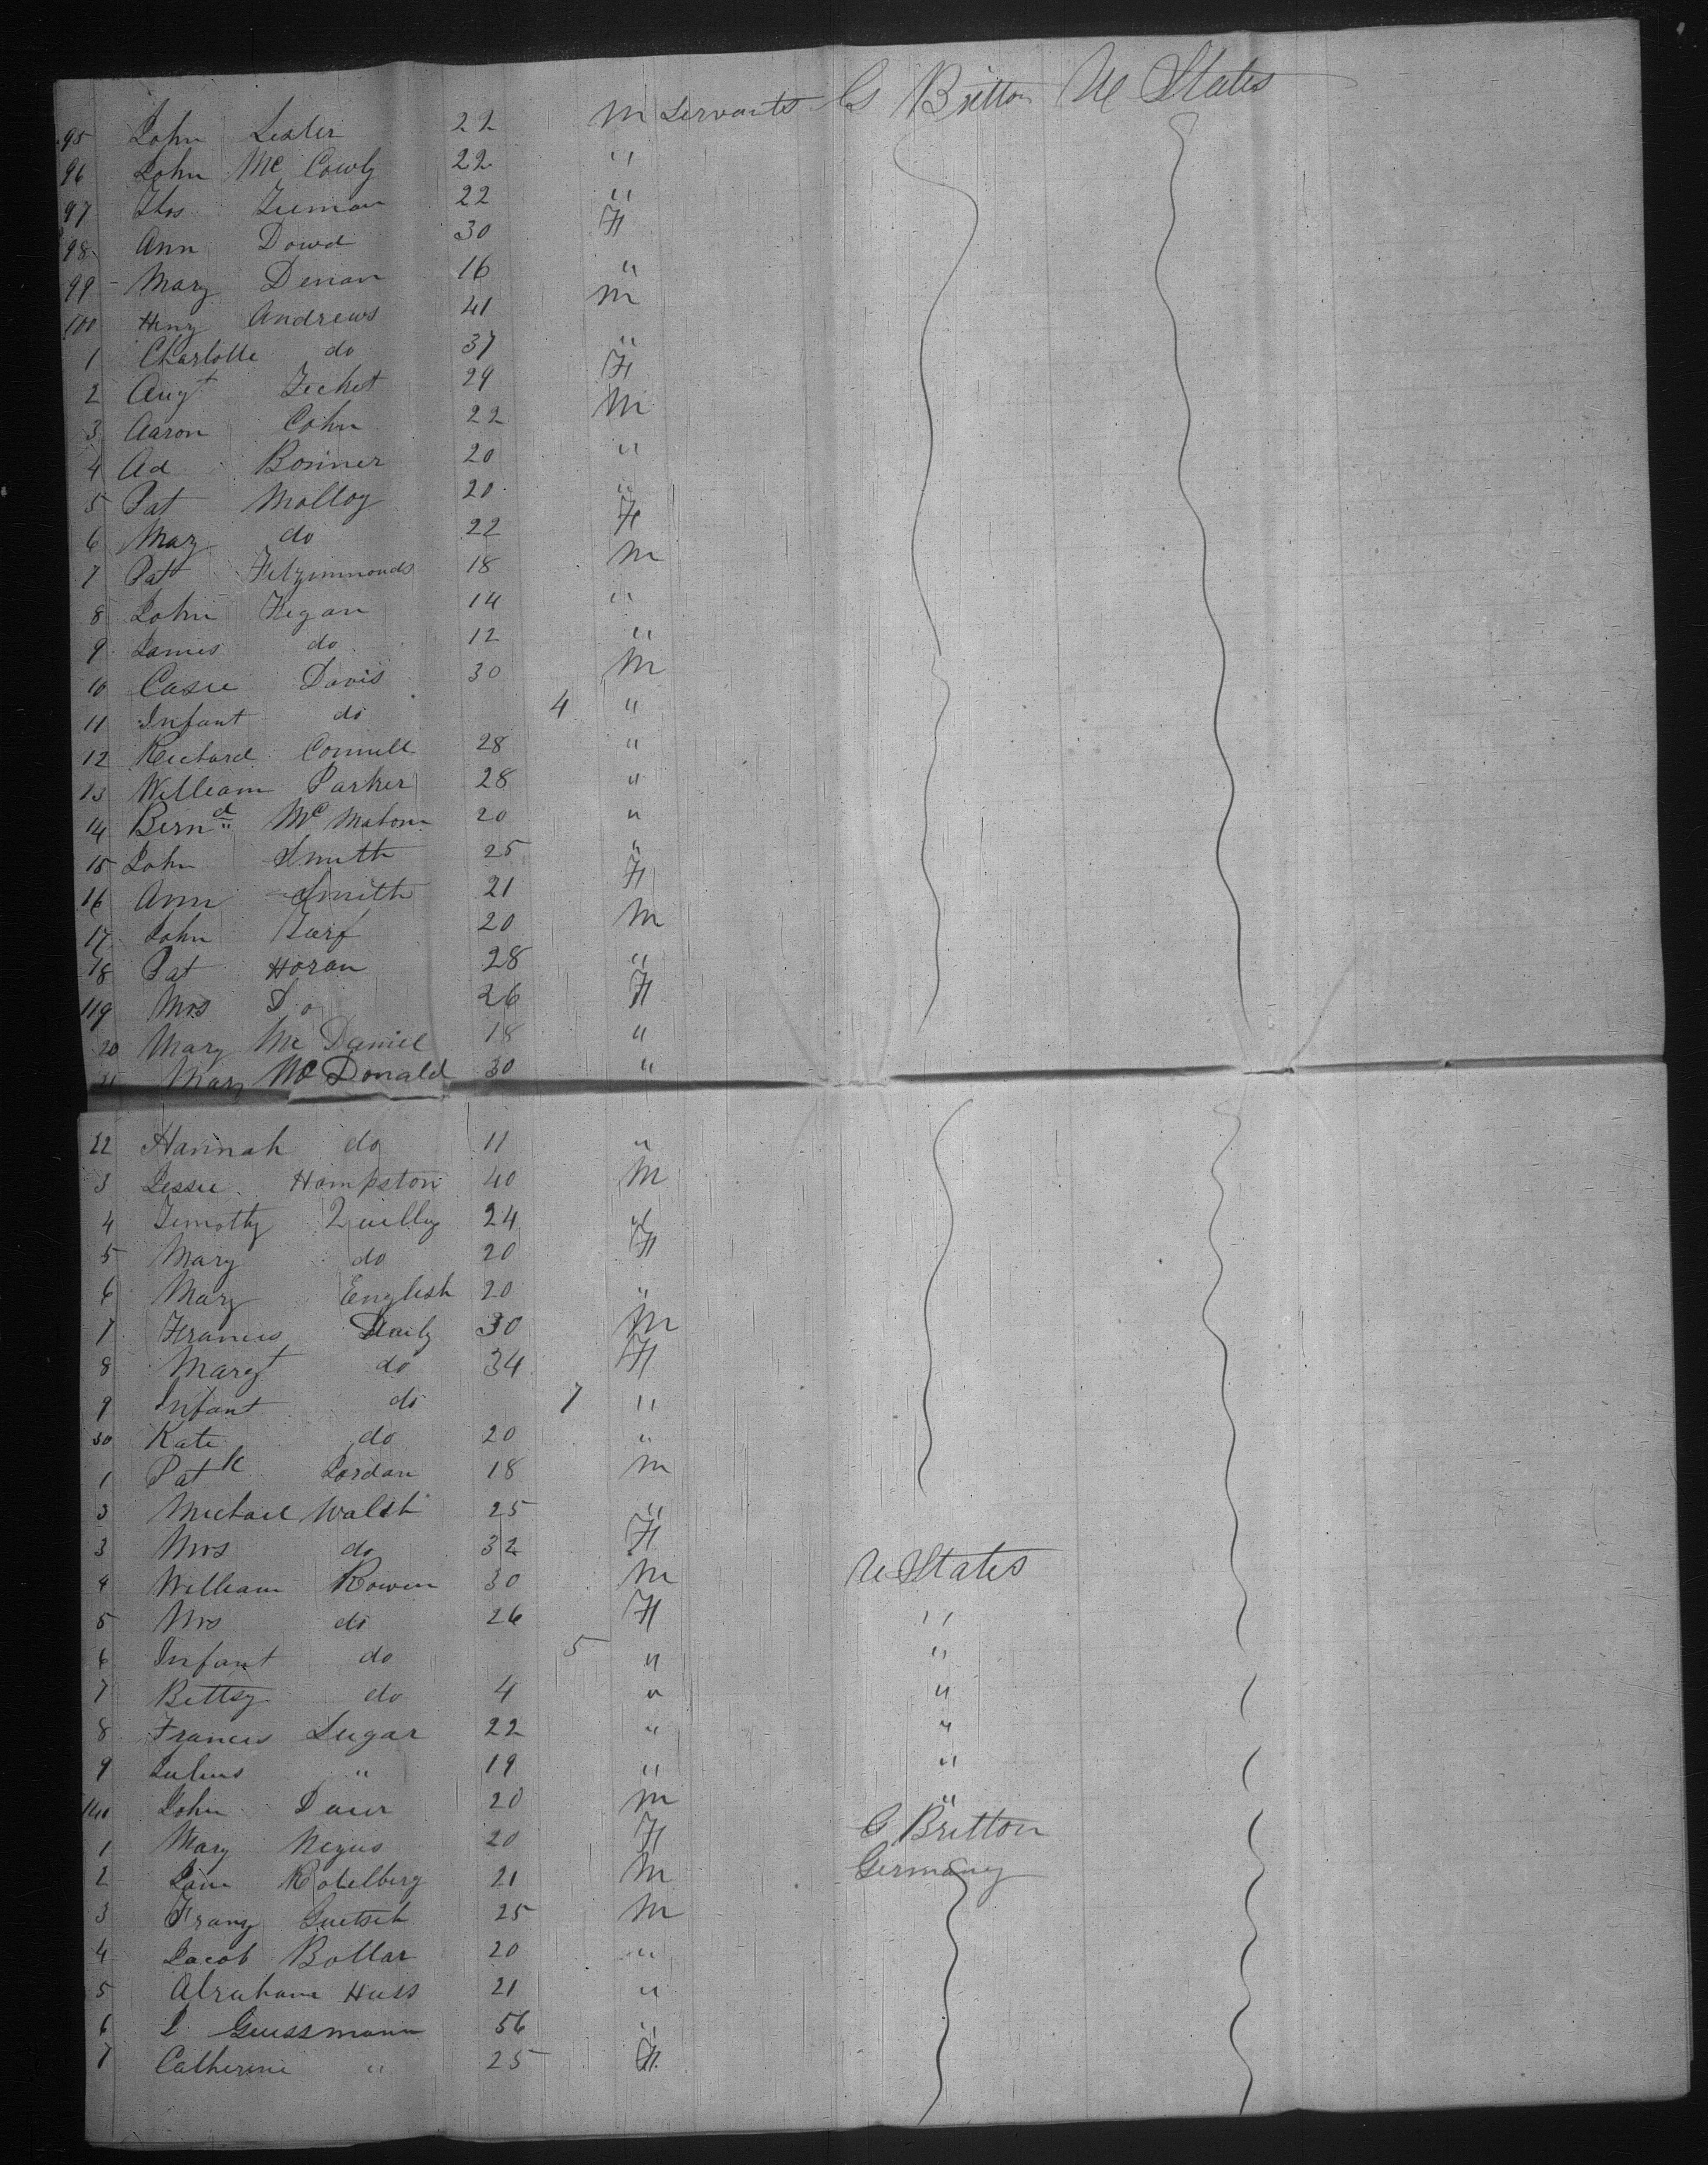 95 John Lester 22 M Servants G Britton U States
96 John Mc Cowly 22 "
97 Thos 22 "
98 Ann Dowd 30 F
99 Mary Denan 16 "
100 Heny Andrews 41 M
1 Charlotte do 37 "
2 Augt Zechet 29 F
3 Aaron Cohn 22 M
4 Ad Bonner 20 "
5 Pat Molloy 20 "
6 Mary do 22 F
7 Pat Fitzimmonds 18 M
8 John Fegan 14 "
9 James do 12 "
10 Casie Davis 30 M
11 Infant do 4 "
12 Richard Connell 28 "
13 William Parker 28 "
14 Bernd Mc Mahon 20 "
15 John Smith 25 "
16 Ann Smith 21 F
17 John 20 M
18 Pat Horan 28 "
119 Mrs Do 26 F
20 Mary Mc Daniel 18 "
21 Mary Mc Donald 30 "
22 Hannah do 11 "
3 Jessie Hampston 40 M
4 Timothy Quilly 24 "
5 Mary do 20 F
6 Mary English 20 "
7 Francis Daily 30 M
8 Margt do 34 F
9 Infant do 7 "
30 Kate do 20 "
1 Patk Jordan 18 M
3 Michael Walsh 25 "
3 Mrs do 32 F
4 William Rowen 30 M U States
5 Mrs do 26 F "
6 Infant do 5 " "
7 Bettsy do 4 " "
8 Francis Sugar 22 " "
9 Julius " 19 " "
140 John 20 M "
1 Mary Negus 20 F G Britton
2 Rotelberg 21 M Germany
3 Franz Guetseh 25 M
4 Jacob Bollar 20 "
5 Abraham Huss 21 "
6 Geussmann 56 "
7 Catherine " 25 F